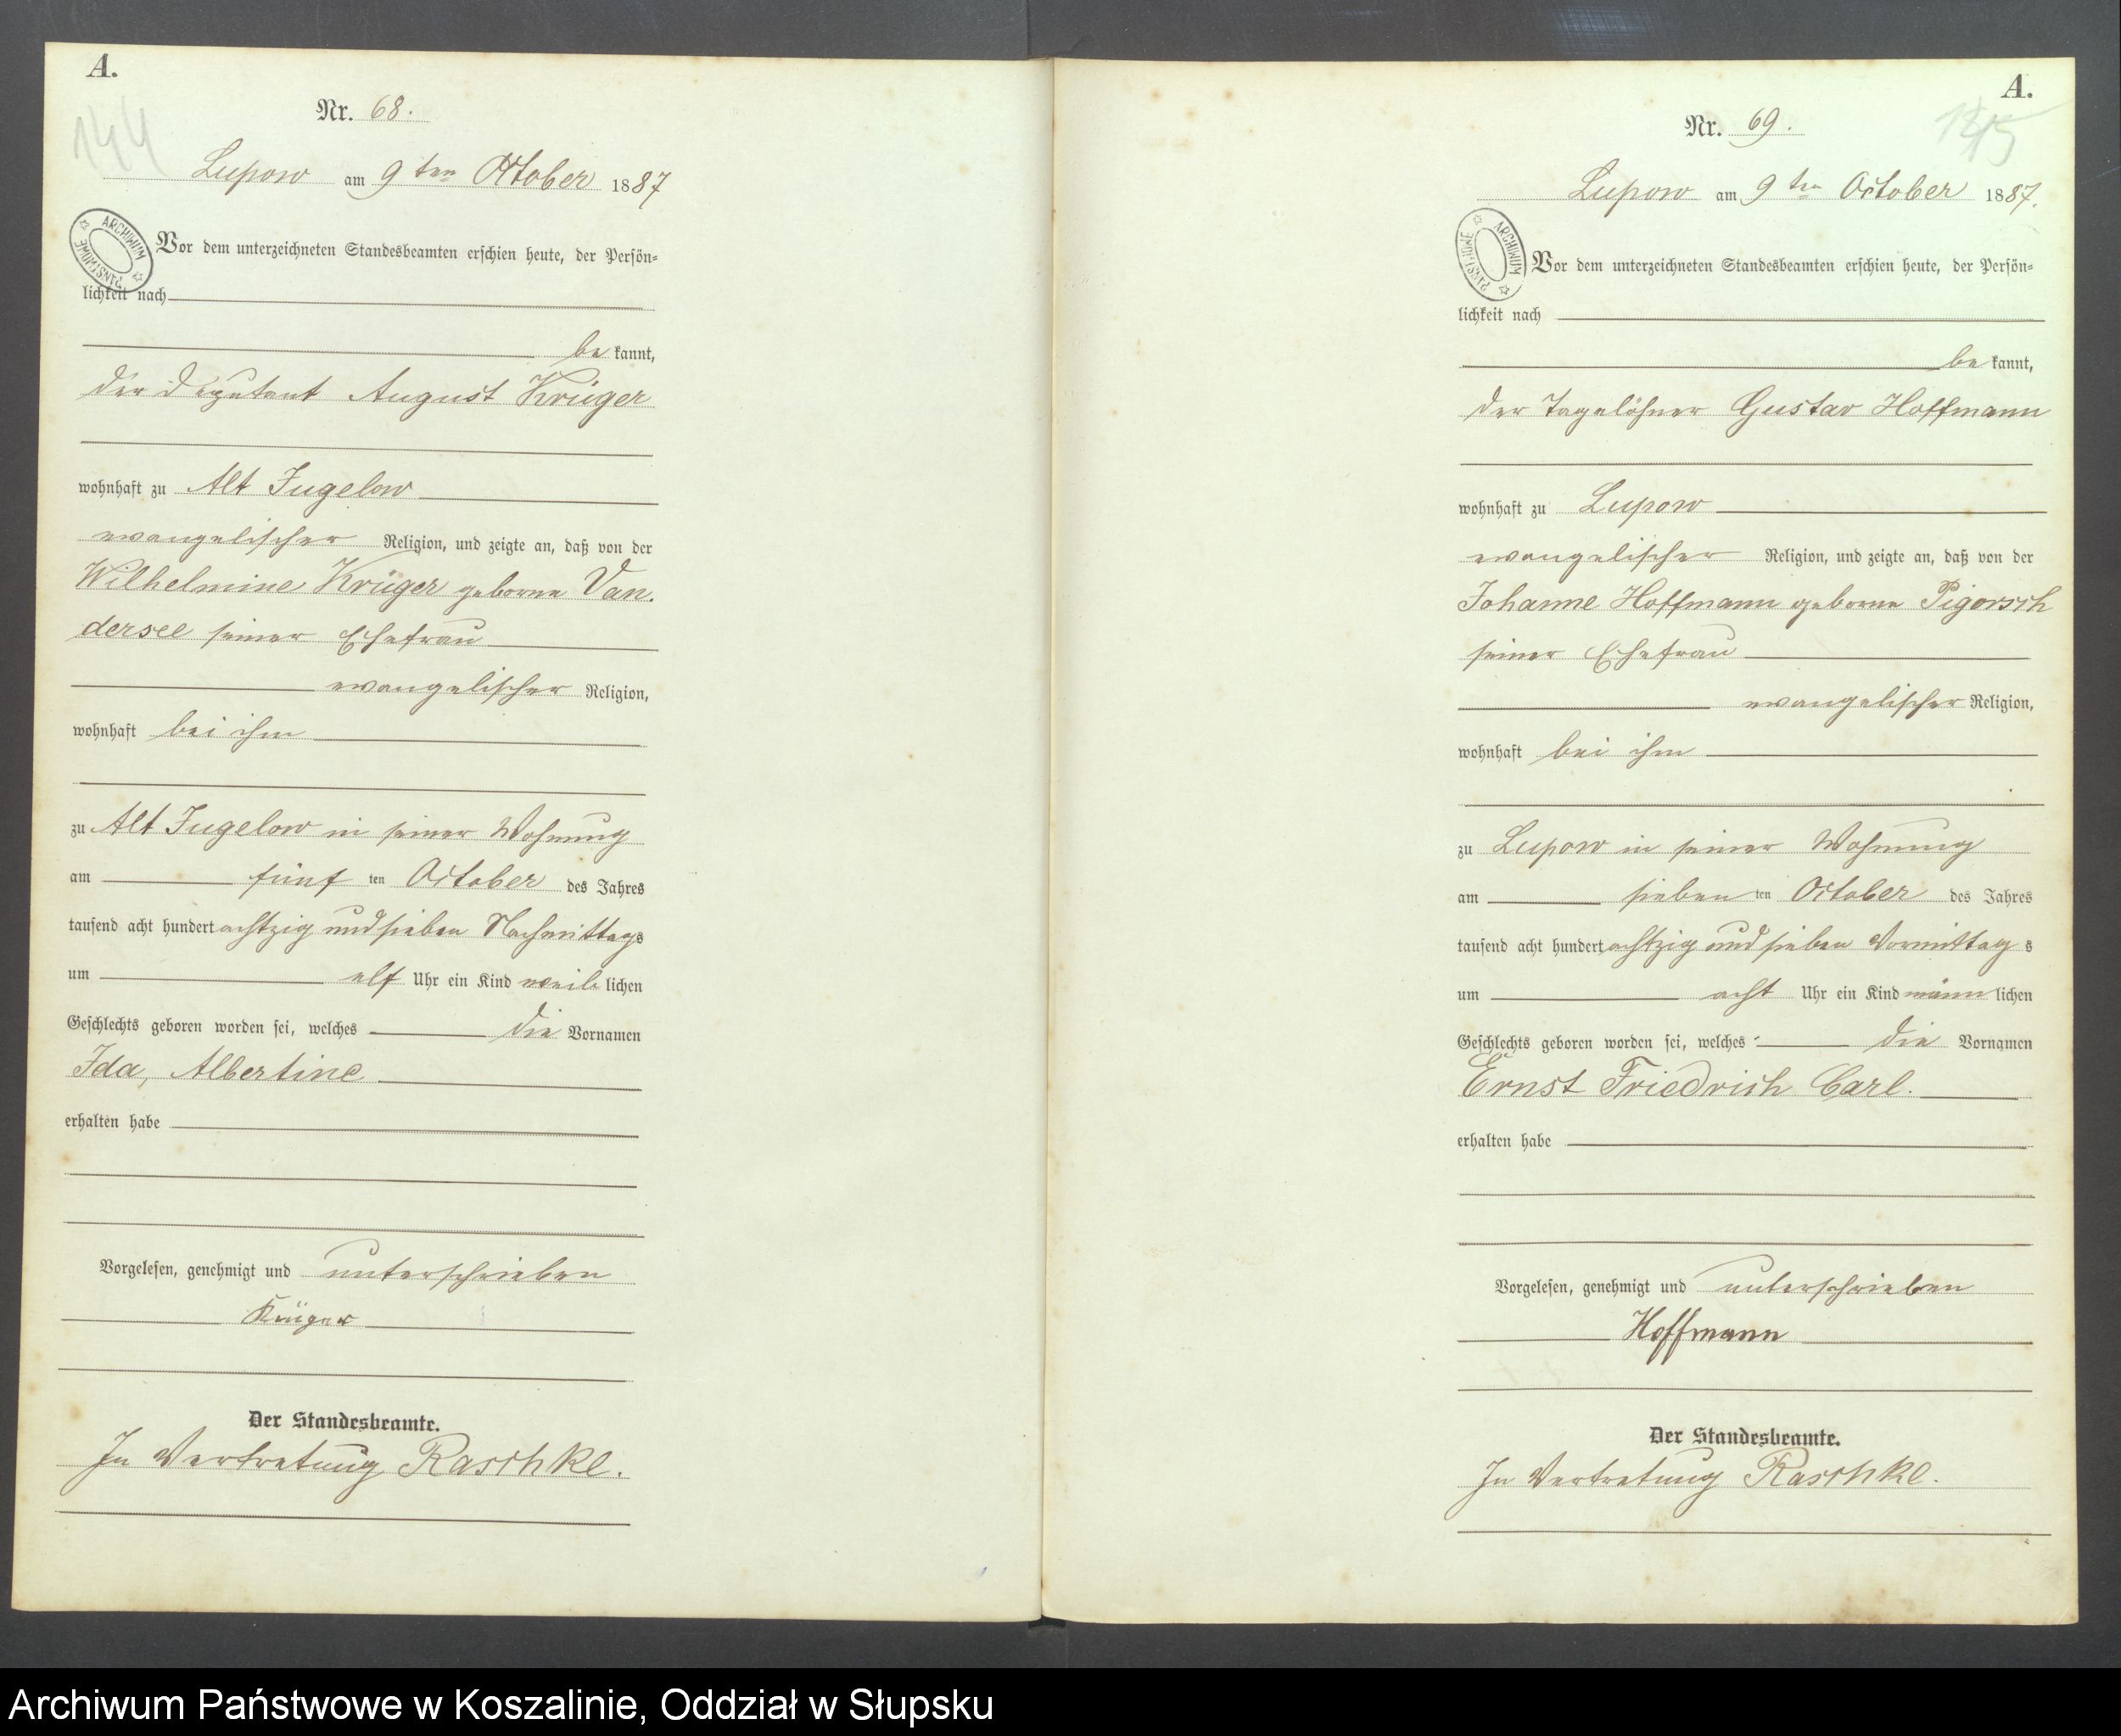 A.
144
Nr. 68.
Lupow am 9ten October 1887
ARCHIWUM PAŃSTWOWE
Vor dem unterzeichneten Standesbeamten erschien heute, der Persön-
lichkeit nach
be kannt,
der Deputant August Krüger
wohnhaft zu Alt Jugelow
evangelischer Religion, und zeigte an, daß von der
Wilhelmine Krüger geborne Van-
dersee seiner Ehefrau
evangelischer Religion,
wohnhaft bei ihm
zu Alt Jugelow in seiner Wohnung
am fünf ten October des Jahres
tausend acht hundert achtzig und sieben Nachmittags
um elf Uhr ein Kind weib lichen
Geschlechts geboren worden sei, welches die Vornamen
Ida, Albertine
erhalten habe
Vorgelesen, genehmigt und unterschrieben
Krüger
Der Standesbeamte.
In Vertretung Raschke.
A.
145
Nr. 69.
Lupow am 9ten October 1887.
ARCHIWUM PAŃSTWOWE
Vor dem unterzeichneten Standesbeamten erschien heute, der Persön-
lichkeit nach
be kannt,
der Tagelöhner Gustav Hoffmann
wohnhaft zu Lupow
evangelischer Religion, und zeigte an, daß von der
Johanne Hoffmann geborne Pigorsch
seiner Ehefrau
evangelischer Religion,
wohnhaft bei ihm
zu Lupow in seiner Wohnung
am sieben ten October des Jahres
tausend acht hundert achtzig und sieben Vormittag s
um acht Uhr ein Kind männ lichen
Geschlechts geboren worden sei, welches die Vornamen
Ernst Friedrich Carl.
erhalten habe
Vorgelesen, genehmigt und unterschrieben
Hoffmann
Der Standesbeamte.
In Vertretung Raschke.
Archiwum Państwowe w Koszalinie, Oddział w Słupsku